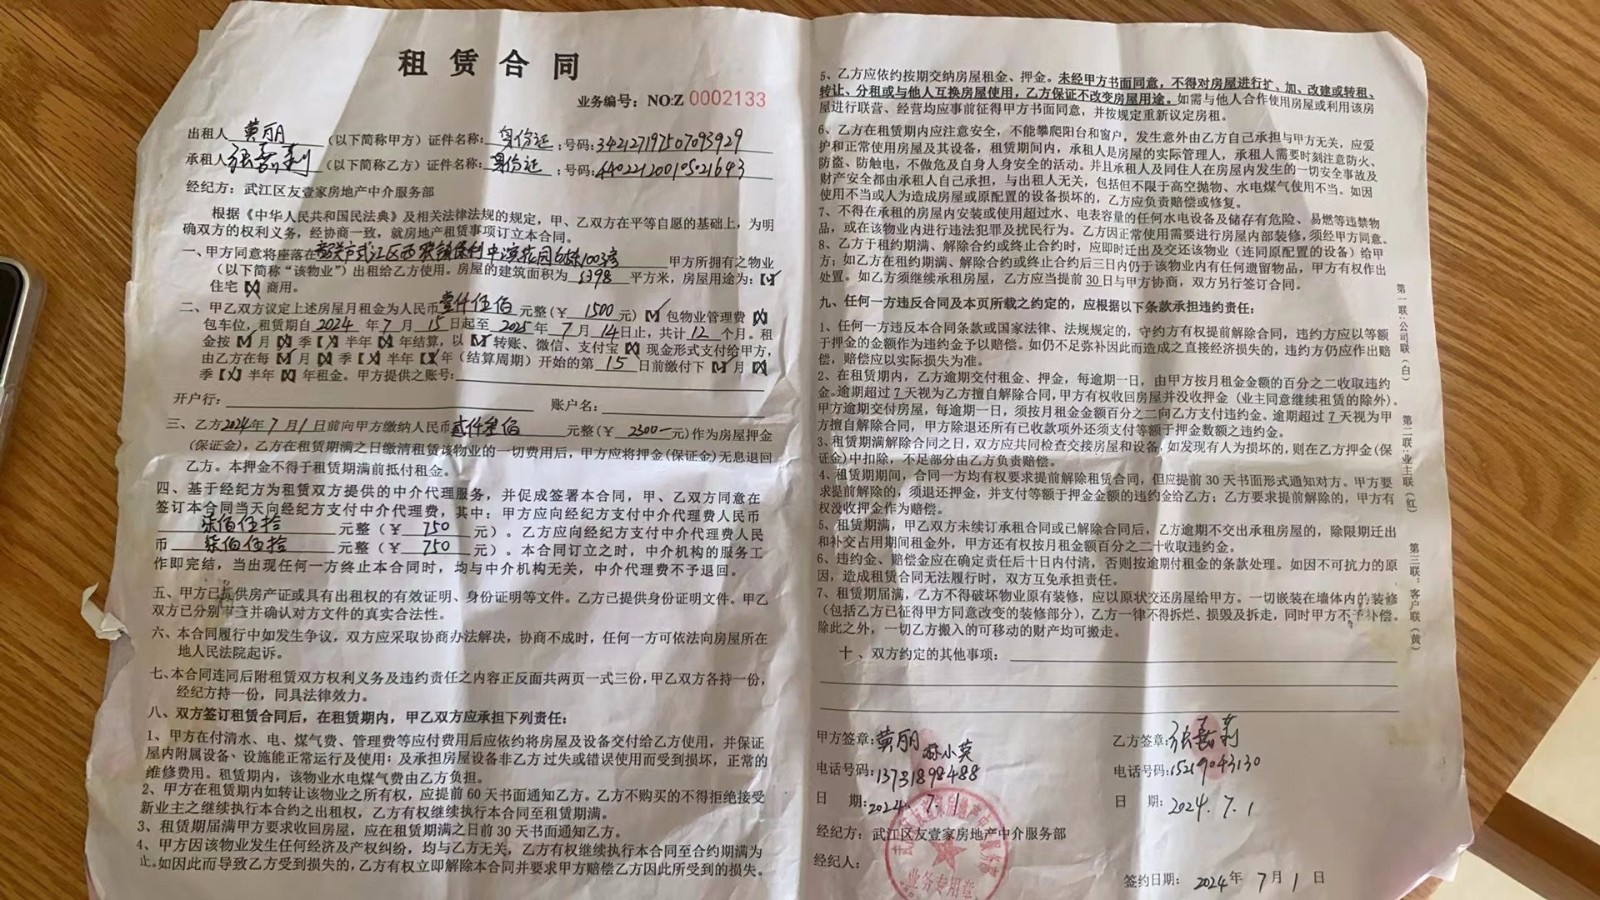 租赁合同
业务编号：NO:Z 0002133
出租人 黄丽 （以下简称甲方）证件名称：身份证；号码：342127197507093929
承租人 张嘉莉 （以下简称乙方）证件名称：身份证；号码：440221200105021643
经纪方：武江区友壹家房地产中介服务部
根据《中华人民共和国民法典》及相关法律法规的规定，甲、乙双方在平等自愿的基础上，为明
确双方的权利义务，经协商一致，就房地产租赁事项订立本合同。
一、甲方同意将座落在韶关市武江区西联镇保利中演花园 甲方所拥有之物业
（以下简称“该物业”）出租给乙方使用。房屋的建筑面积为 平方米，房屋用途为：【✓】
住宅【X】商用。
二、甲乙双方议定上述房屋月租金为人民币壹仟伍佰元整（￥1500元）【✓】包物业管理费【X】
包车位，租赁期自2024年7月15日起至2025年7月14日止，共计12个月。租
金按【✓】月【X】季【X】半年【X】年结算，以【✓】转账、微信、支付宝【X】现金形式支付给甲方，
由乙方在每【✓】月【X】季【X】半年【X】年（结算周期）开始的第15日前缴付下【✓】月【X】
季【X】半年【X】年租金。甲方提供之账号：
开户行： 账户名：
三、乙方2024年7月1日前向甲方缴纳人民币贰仟叁佰元整（￥2300元）作为房屋押金
（保证金），乙方在租赁期满之日缴清租赁该物业的一切费用后，甲方应将押金（保证金）无息退回
乙方。本押金不得于租赁期满前抵付租金。
四、基于经纪方为租赁双方提供的中介代理服务，并促成签署本合同，甲、乙双方同意在
签订本合同当天向经纪方支付中介代理费，其中：甲方应向经纪方支付中介代理费人民币
柒佰伍拾 元整（￥750元）。乙方应向经纪方支付中介代理费人民
币 柒佰伍拾 元整（￥750元）。本合同订立之时，中介机构的服务工
作即完结，当出现任何一方终止本合同时，均与中介机构无关，中介代理费不予退回。
五、甲方已提供房产证或具有出租权的有效证明、身份证明等文件。乙方已提供身份证明文件。甲乙
双方已分别审查并确认对方文件的真实合法性。
六、本合同履行中如发生争议，双方应采取协商办法解决，协商不成时，任何一方可依法向房屋所在
地人民法院起诉。
七、本合同连同后附租赁双方权利义务及违约责任之内容正反面共两页一式三份，甲乙双方各持一份，
经纪方持一份，同具法律效力。
八、双方签订租赁合同后，在租赁期内，甲乙双方应承担下列责任：
1、甲方在付清水、电、煤气费、管理费等应付费用后应依约将房屋及设备交付给乙方使用，并保证
屋内附属设备、设施能正常运行及使用；及承担房屋设备非乙方过失或错误使用而受到损坏，正常的
维修费用。租赁期内，该物业水电煤气费由乙方负担。
2、甲方在租赁期内如转让该物业之所有权，应提前60天书面通知乙方。乙方不购买的不得拒绝接受
新业主之继续执行本合约之出租权，乙方有权继续执行本合同至租赁期满。
3、租赁期届满甲方要求收回房屋，应在租赁期满之日前30天书面通知乙方。
4、甲方因该物业发生任何经济及产权纠纷，均与乙方无关，乙方有权继续执行本合同至合约期满为
止。如因此而导致乙方受到损失的，乙方有权立即解除本合同并要求甲方赔偿乙方因此所受到的损失。
5、乙方应依约按期交纳房屋租金、押金。未经甲方书面同意，不得对房屋进行扩、加、改建或转租、
转让、分租或与他人互换房屋使用，乙方保证不改变房屋用途。如需与他人合作使用房屋或利用该房
屋进行联营、经营均应事前征得甲方书面同意，并按规定重新议定房租。
6、乙方在租赁期内应注意安全，不能攀爬阳台和窗户，发生意外由乙方自己承担与甲方无关，应爱
护和正常使用房屋及其设备，租赁期间内，承租人是房屋的实际管理人，承租人需要时刻注意防火、
防盗、防触电，不做危及自身人身安全的活动。并且承租人及同住人在房屋内发生的一切安全事故及
财产安全都由承租人自己承担，与出租人无关，包括但不限于高空抛物、水电煤气使用不当。如因
使用不当或人为造成房屋或原配置的设备损坏的，乙方应负责赔偿或修复。
7、不得在承租的房屋内安装或使用超过水、电表容量的任何水电设备及储存有危险、易燃等违禁物
品，或在该物业内进行违法犯罪及扰民行为。乙方因正常使用需要进行房屋内部装修，须经甲方同意。
8、乙方于租约期满、解除合约或终止合约时，应即时迁出及交还该物业（连同原配置的设备）给甲
方；如乙方在租约期满、解除合约或终止合约后三日内仍于该物业内有任何遗留物品，甲方有权作出
处置。如乙方须继续承租房屋，乙方应当提前30日与甲方协商，双方另行签订合同。
九、任何一方违反合同及本页所载之约定的，应根据以下条款承担违约责任：
1、任何一方违反本合同条款或国家法律、法规规定的，守约方有权提前解除合同，违约方应以等额
于押金的金额作为违约金予以赔偿。如仍不足弥补因此而造成之直接经济损失的，违约方仍应作出赔
偿，赔偿应以实际损失为准。
2、在租赁期内，乙方逾期交付租金、押金，每逾期一日，由甲方按月租金金额的百分之二收取违约
金。逾期超过7天视为乙方擅自解除合同，甲方有权收回房屋并没收押金（业主同意继续租赁的除外）。
甲方逾期交付房屋，每逾期一日，须按月租金金额百分之二向乙方支付违约金、逾期超过7天视为甲
方擅自解除合同，甲方除退还所有已收款项外还须支付等额于押金数额之违约金。
3、租赁期满解除合同之日，双方应共同检查交接房屋和设备，如发现有人为损坏的，则在乙方押金（保
证金）中扣除，不足部分由乙方负责赔偿。
4、租赁期期间，合同一方均有权要求提前解除租赁合同，但应提前30天书面形式通知对方。甲方要
求提前解除的，须退还押金，并支付等额于押金金额的违约金给乙方；乙方要求提前解除的，甲方有
权没收押金作为赔偿。
5、租赁期满，甲乙双方未续订承租合同或已解除合同后，乙方逾期不交出承租房屋的，除限期迁出
和补交占用期间租金外，甲方还有权按月租金额百分之二十收取违约金。
6、违约金、赔偿金应在确定责任后十日内付清，否则按逾期付租金的条款处理。如因不可抗力的原
因，造成租赁合同无法履行时，双方互免承担责任。
7、租赁期届满，乙方不得破坏物业原有装修，应以原状交还房屋给甲方。一切嵌装在墙体内的装修
（包括乙方已征得甲方同意改变的装修部分），乙方一律不得拆烂、损毁及拆走，同时甲方不予补偿。
除此之外，一切乙方搬入的可移动的财产均可搬走。
十、双方约定的其他事项：
甲方签章：黄丽 孙小英
电话号码：13731898488
日 期：2024.7.1
经纪方：武江区友壹家房地产中介服务部
经纪人：
乙方签章：张嘉莉
电话号码：15219043130
日 期：2024.7.1
签约日期：2024年7月1日
业务专用章
第一联：公司联（白）
第二联：业主联（红）
第三联：客户联（黄）